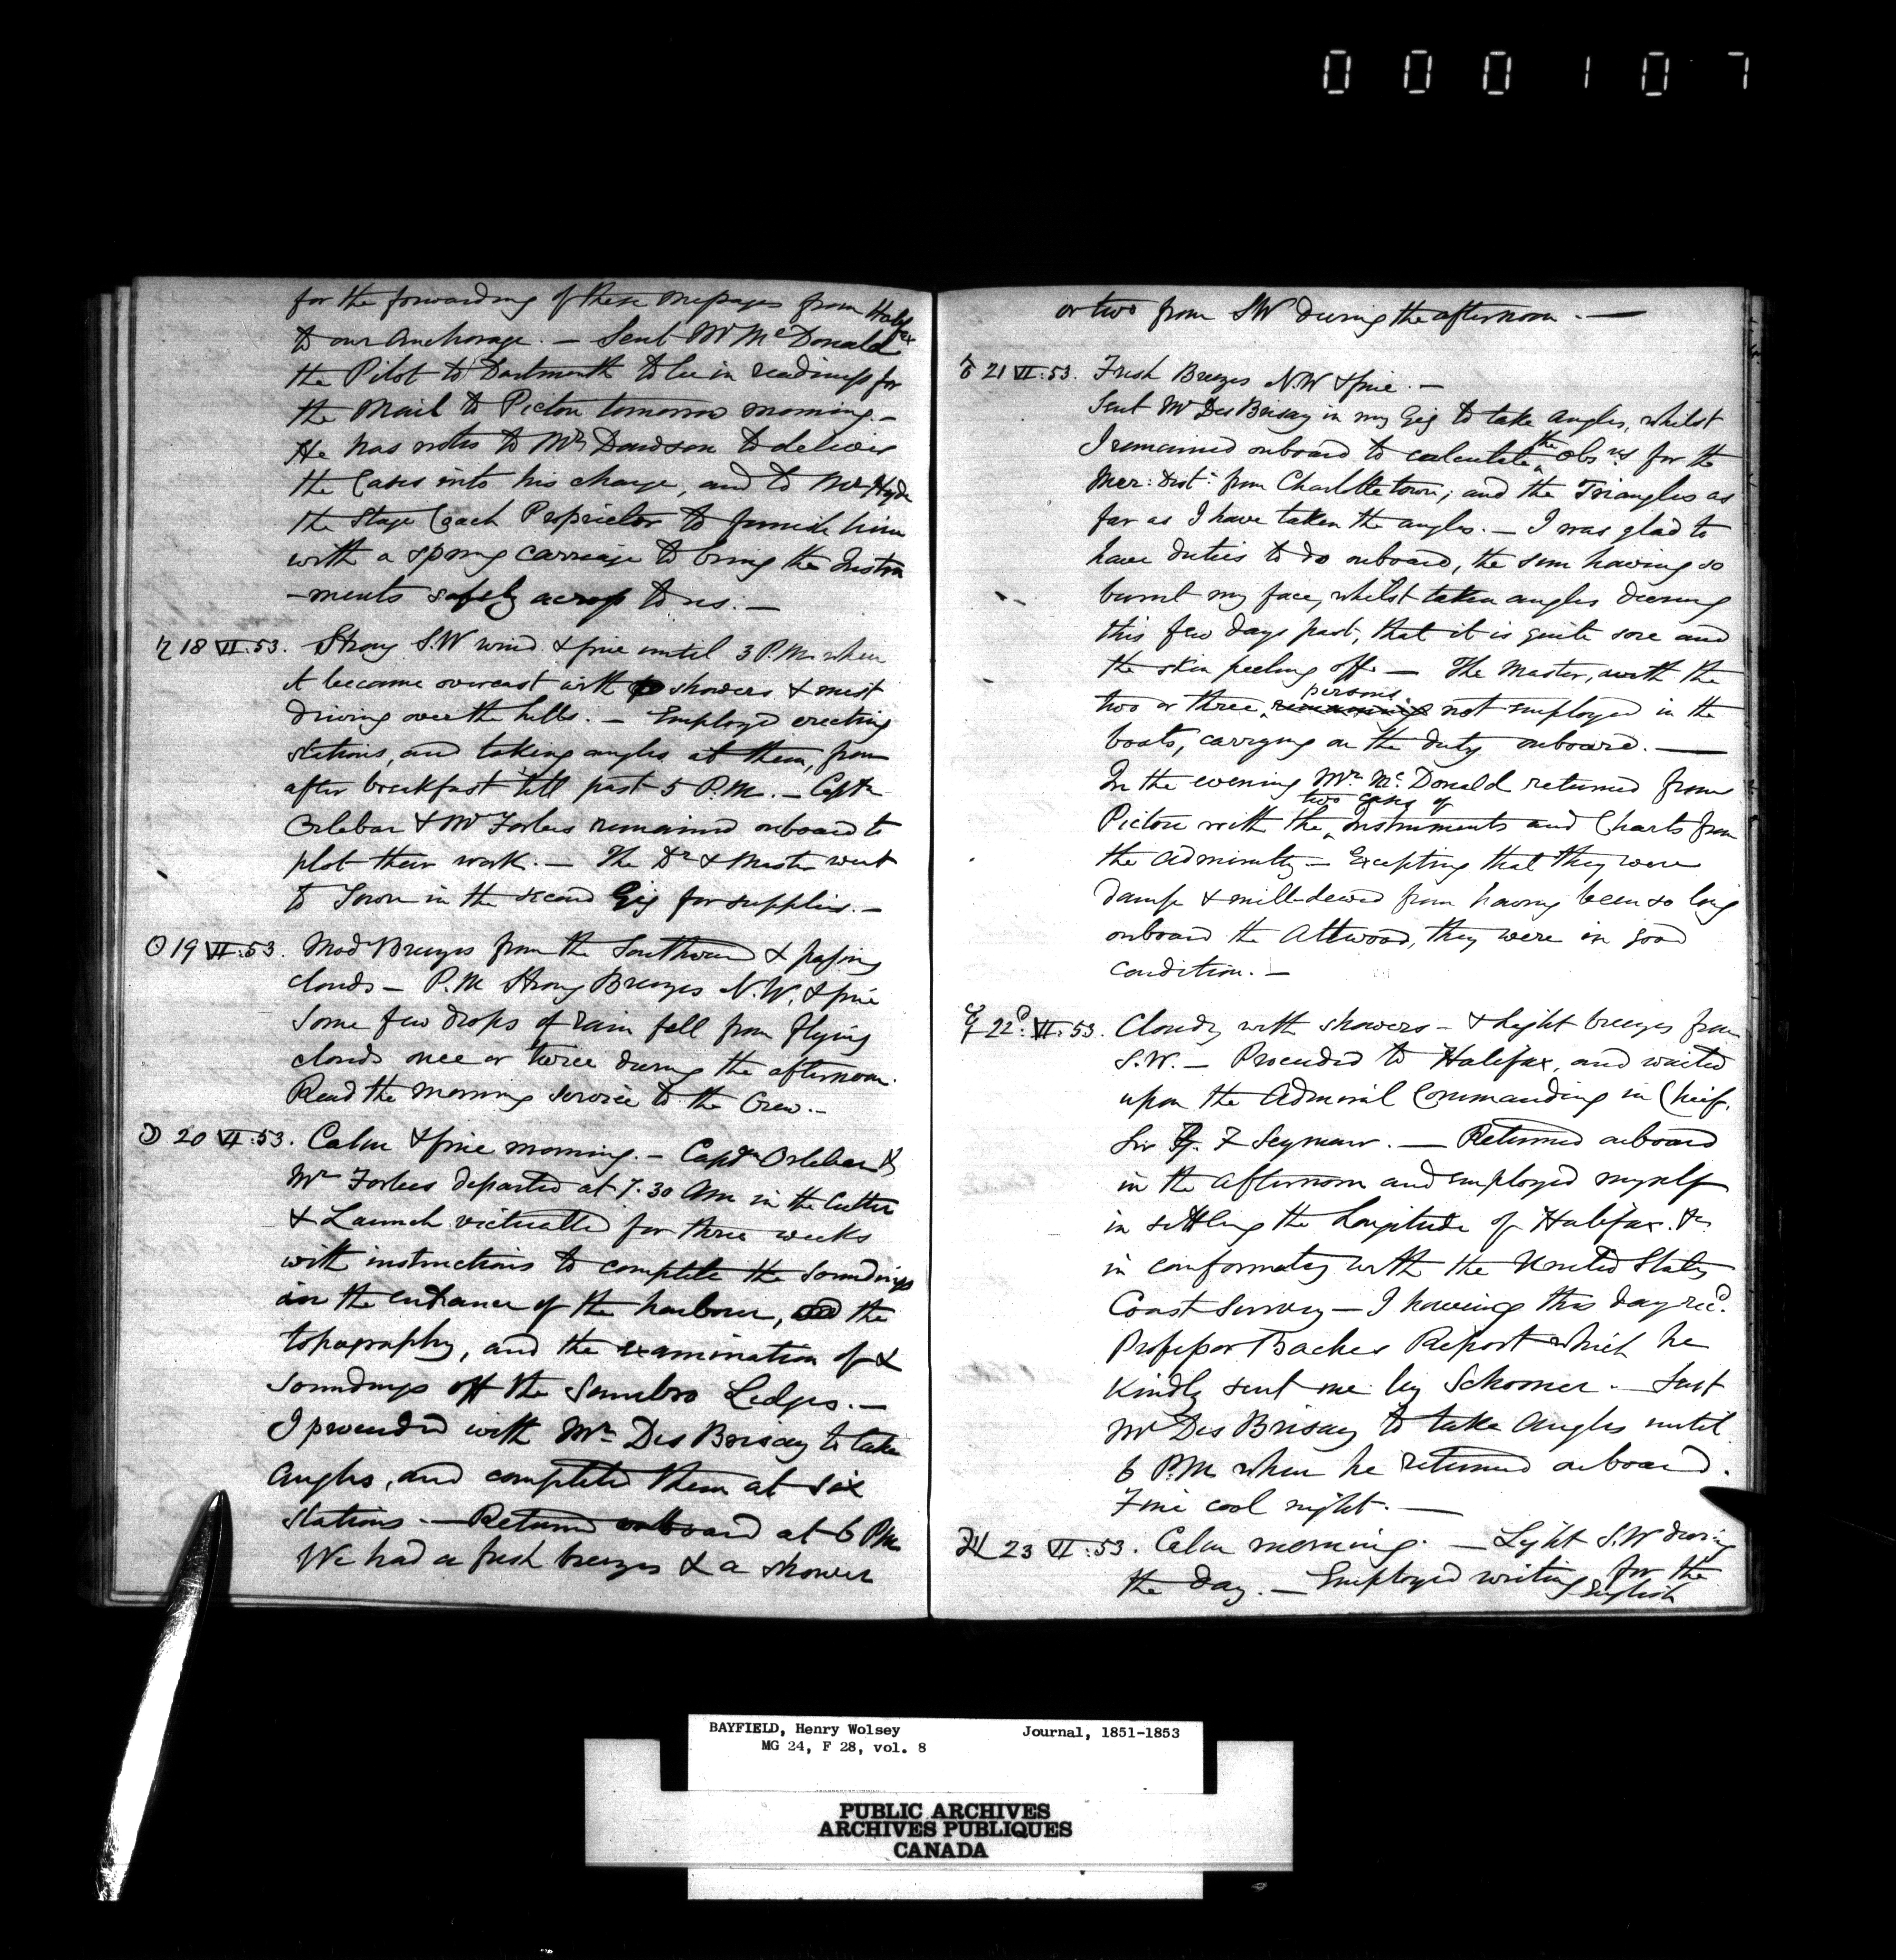 000107
for the forwarding of these messages from Halifax
to our Anchorage. — Sent Mr McDonald
the Pilot to Dartmouth to be in readiness for
the Mail to Pictou tomorrow morning. —
He has notes to Mr Dawson to deliver
the Cases into his charge, and to Mr Hyde
the Stage Coach Proprietor to furnish him
with a spring carriage to bring the Instru
-ments safely across to us. —
♄ 18 VI:53. Strong S.W wind & fine until 3 P.M. when
it became overcast with showers & mist
driving over the hills. — Employed erecting
stations, and taking angles at them, from
after breakfast till past 5 P.M. — Captn
Orlebar & Mr Forbes remained onboard to
plot their work. — The Dr & Master went
to Town in the second Gig for supplies. —
☉ 19 VI:53. Modr Breezes from the Southward & passing
clouds — P.M Strong Breezes N.W. & fine
Some few drops of rain fell from flying
clouds once or twice during the afternoon.
Read the Morning Service to the Crew. —
☽ 20 VI:53. Calm & fine morning. — Captn Orlebar &
Mr Forbes departed at 7.30 AM in the Cutter
& Launch victualled for three weeks
with instructions to complete the Soundings
in the entrance of the harbour, and the
topography, and the examination of &
Soundings off the Sambro Ledges. —
I proceeded with Mr Des Brisay to take
Angles, and completed them at six
Stations. — Returned onboard at 6 PM
We had a fresh breezes & a shower
or two from SW during the afternoon. —
♂ 21 VI:53. Fresh Breezes N.W & fine. —
Sent Mr Des Brisay in my Gig to take Angles, whilst
I remained onboard to calculate the Obsns for the
Mer: Dist: from Charlotte town; and the Triangles as
far as I have taken the angles. — I was glad to
have duties to do onboard, the sun having so
burnt my face, whilst taken angles during
this few days past, that it is quite sore and
the skin peeling off. — The Master, with the
two or three remaining persons not employed in the
boats, carrying on the duty onboard. —
In the evening Mr McDonald returned from
Pictou with the two cases of Instruments and Charts from
the Admiralty — Excepting that they were
damp & mill-dewed from having been so long
onboard the Attwood, they were in good
condition. —
☿ 22d VI:53. Cloudy with showers — & Light breezes from
S.W. — Proceeded to Halifax, and waited
upon the Admiral Commanding in Cheif,
Sir G. F Seymour. — Returned onboard
in the afternoon and employed myself
in settling the Longitude of Halifax &c
in conformity with the United States
Coast Survey — I having this day recd
Professor Baches Report which he
kindly sent me by Schooner. — Sent
Mr Des Brisay to take Angles until
6 P.M. when he returned onboard.
Fine cool night. —
♃ 23 VI:53. Calm morning. — Light S.W during
the day. — Employed writing for the
English
BAYFIELD, Henry Wolsey Journal, 1851-1853
MG 24, F 28, vol. 8
PUBLIC ARCHIVES
ARCHIVES PUBLIQUES
CANADA